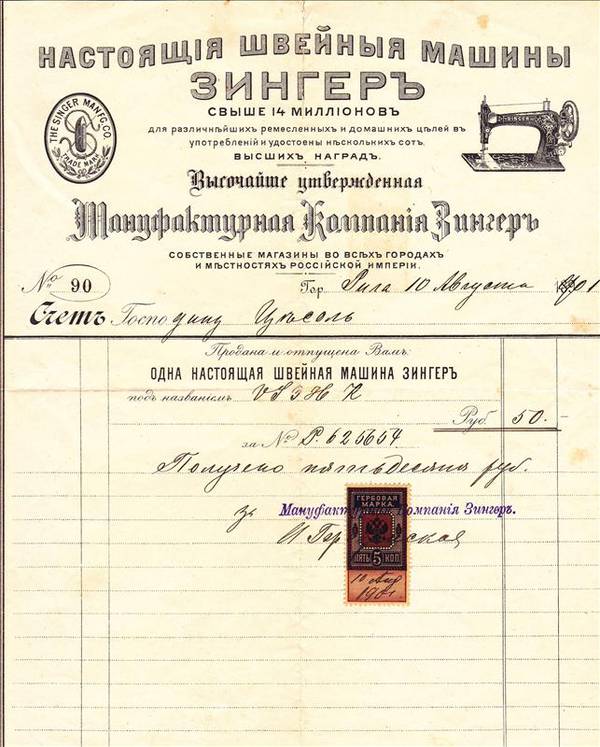 НАСТОЯЩІЯ ШВЕЙНЫЯ МАШИНЫ
ЗИНГЕРЪ
СВЫШЕ 14 МИЛЛІОНОВЪ
для различнѣйшихъ ремесленныхъ и домашнихъ цѣлей въ
употребленіи и удостоены нѣсколькихъ сотъ
ВЫСШИХЪ НАГРАДЪ.
THE SINGER MANFG. CO.
TRADE MARK
SINGER
Высочайше утвержденная
Мануфактурная Компанія Зингеръ
СОБСТВЕННЫЕ МАГАЗИНЫ ВО ВСѢХЪ ГОРОДАХЪ
И МѢСТНОСТЯХЪ РОССІЙСКОЙ ИМПЕРІИ.
№ 90
Гор. Рига 10 Августа 1901
Счетъ Господину
Продана и отпущена Вамъ:
ОДНА НАСТОЯЩАЯ ШВЕЙНАЯ МАШИНА ЗИНГЕРЪ
подъ названіемъ VS 3
Руб. 50.-
за № P. 625654
Получено пятьдесятъ руб.
за Мануфактурная Компанія Зингеръ.
ГЕРБОВАЯ
МАРКА
ПЯТЬ 5 КОП.
10 Авг
1901